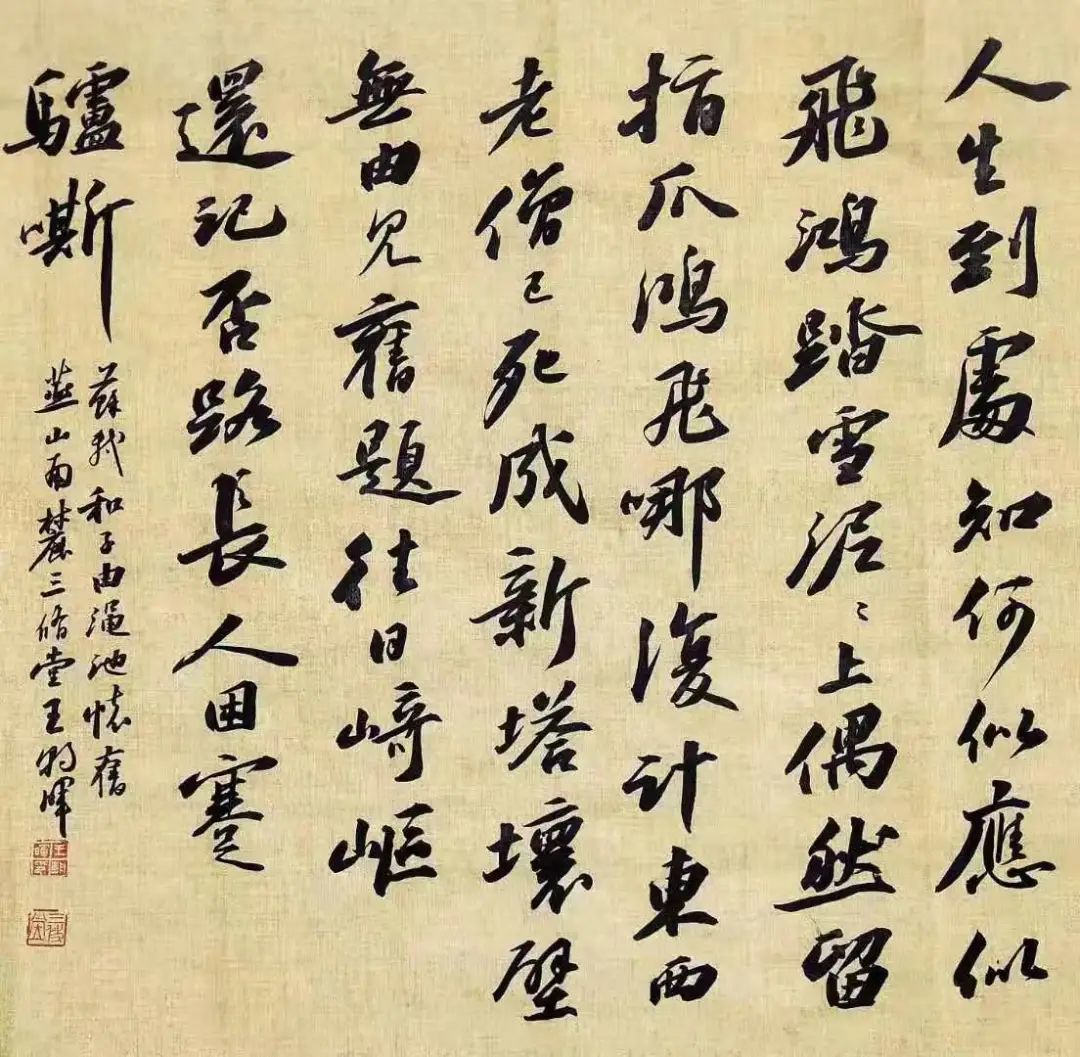 人生到處知何似應似
飛鴻踏雪泥〻上偶然留
指爪鴻飛哪復計東西
老僧已死成新塔壞壁
無由見舊題往日崎嶇
還記否路長人困蹇
驢嘶
蘇軾和子由澠池懷舊
燕山南麓三脩堂王暉